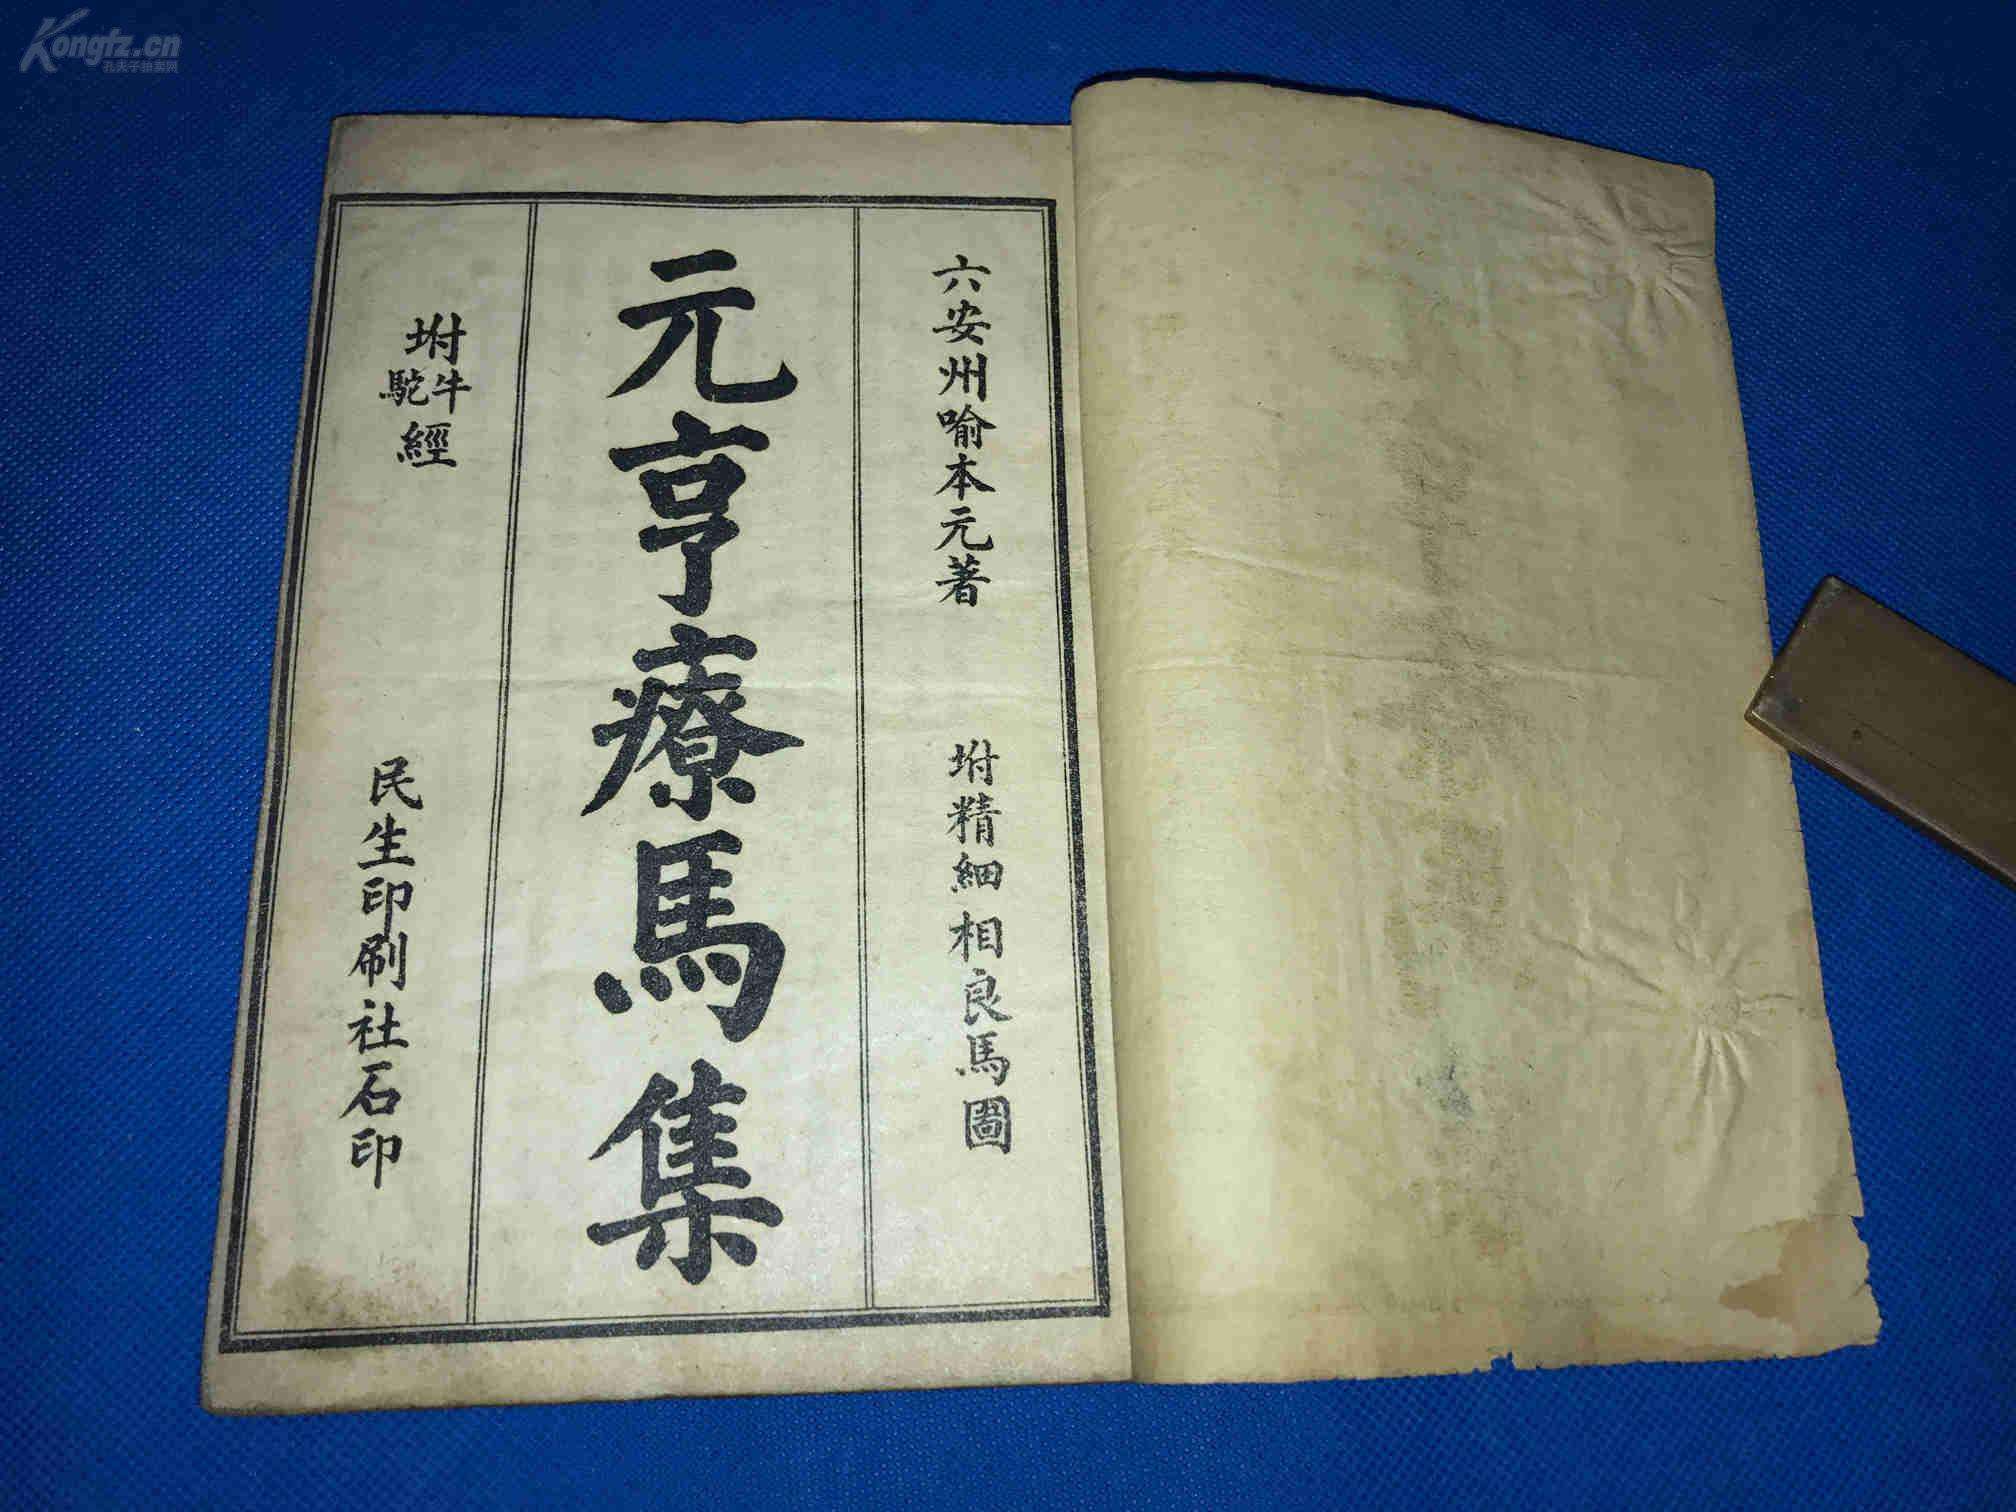 Kongfz.cn
孔夫子拍卖网
六安州喻本元著
坿精細相良馬圖
元亨療馬集
坿牛駝經
民生印刷社石印